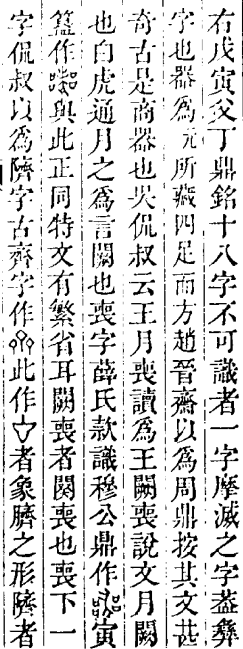 右戊寅父丁鼎銘十八字不可識者一字摩滅之字葢彝
字也器爲元所藏四足而方趙晉齋以爲周鼎按其文甚
奇古是商器也吳侃叔云王月喪讀爲王闕喪說文月闕
也白虎通月之爲言闕也喪字薛氏款識穆公鼎作寅
簋作與此正同特文有繁省耳闕喪者闋喪也喪下一
字侃叔以爲隮字古齊字作此作者象臍之形隮者